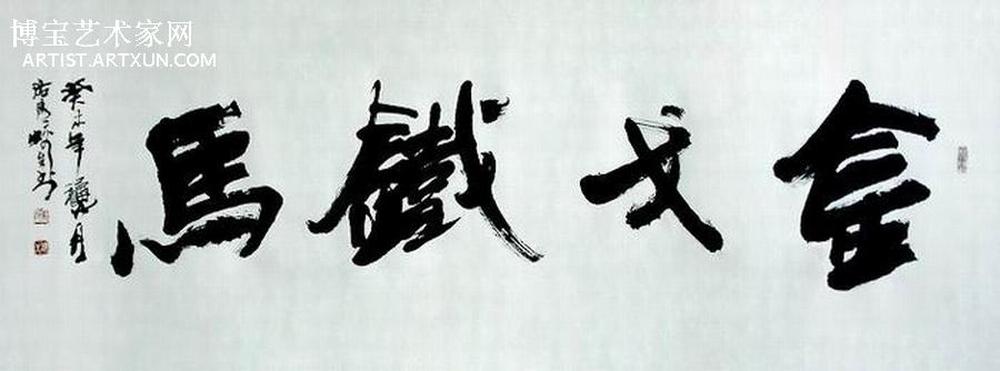 博宝艺术家网
ARTIST.ARTXUN.COM
金戈鐵馬
癸未年
月